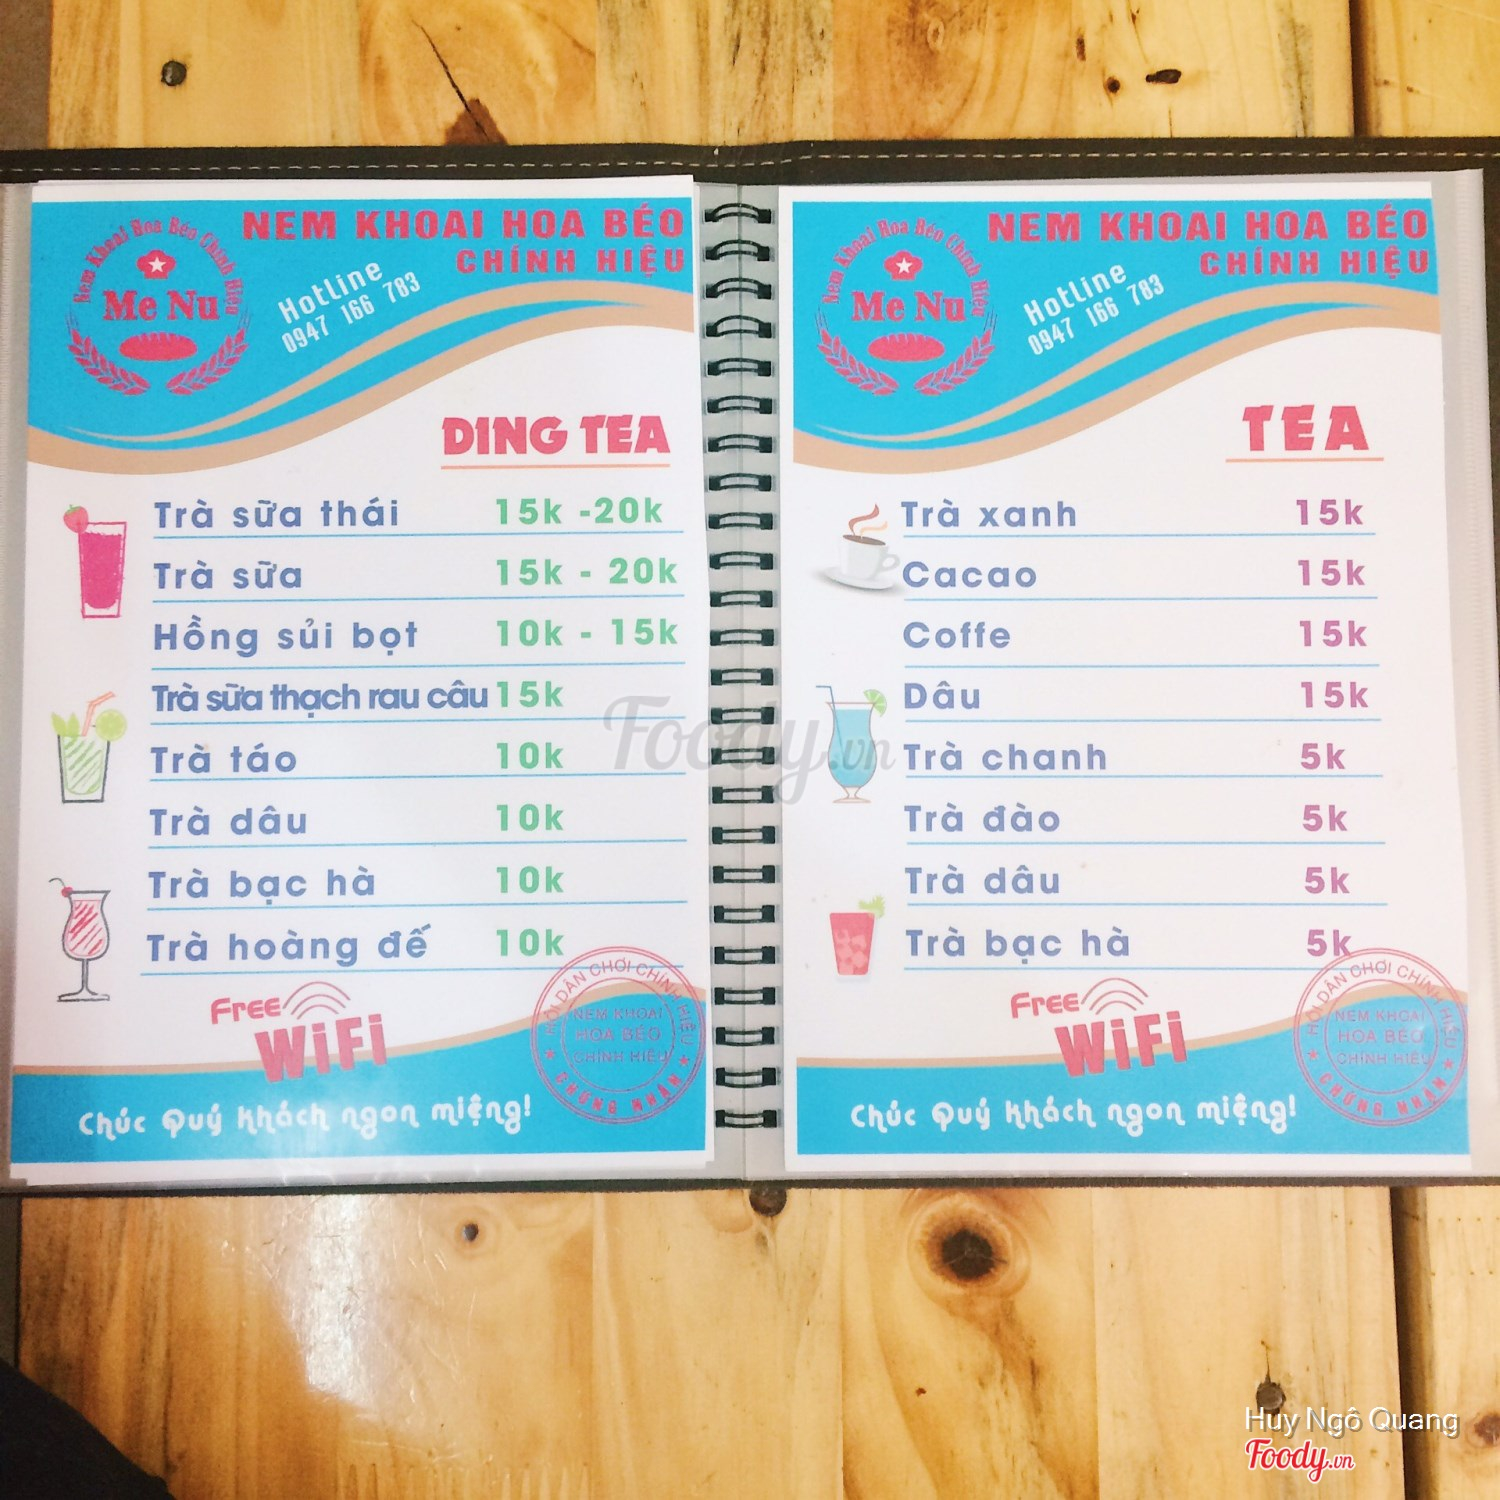 Nem Khoai Hoa Béo Chính Hiệu
Me Nu
NEM KHOAI HOA BÉO
CHÍNH HIỆU
Hotline
0947 166 783
DING TEA
Trà sữa thái 15k -20k
Trà sữa 15k - 20k
Hồng sủi bọt 10k - 15k
Trà sữa thạch rau câu 15k
Trà táo 10k
Trà dâu 10k
Trà bạc hà 10k
Trà hoàng đế 10k
Free
WiFi
HỘI DÂN CHƠI CHÍNH HIỆU
NEM KHOAI
HOA BÉO
CHÍNH HIỆU
CHỨNG NHẬN
Chúc Quý khách ngon miệng!
Nem Khoai Hoa Béo Chính Hiệu
Me Nu
NEM KHOAI HOA BÉO
CHÍNH HIỆU
Hotline
0947 166 783
TEA
Trà xanh 15k
Cacao 15k
Coffe 15k
Dâu 15k
Trà chanh 5k
Trà đào 5k
Trà dâu 5k
Trà bạc hà 5k
Free
WiFi
HỘI DÂN CHƠI CHÍNH HIỆU
NEM KHOAI
HOA BÉO
CHÍNH HIỆU
CHỨNG NHẬN
Chúc Quý khách ngon miệng!
Foody.vn
Huy Ngô Quang
Foody.vn